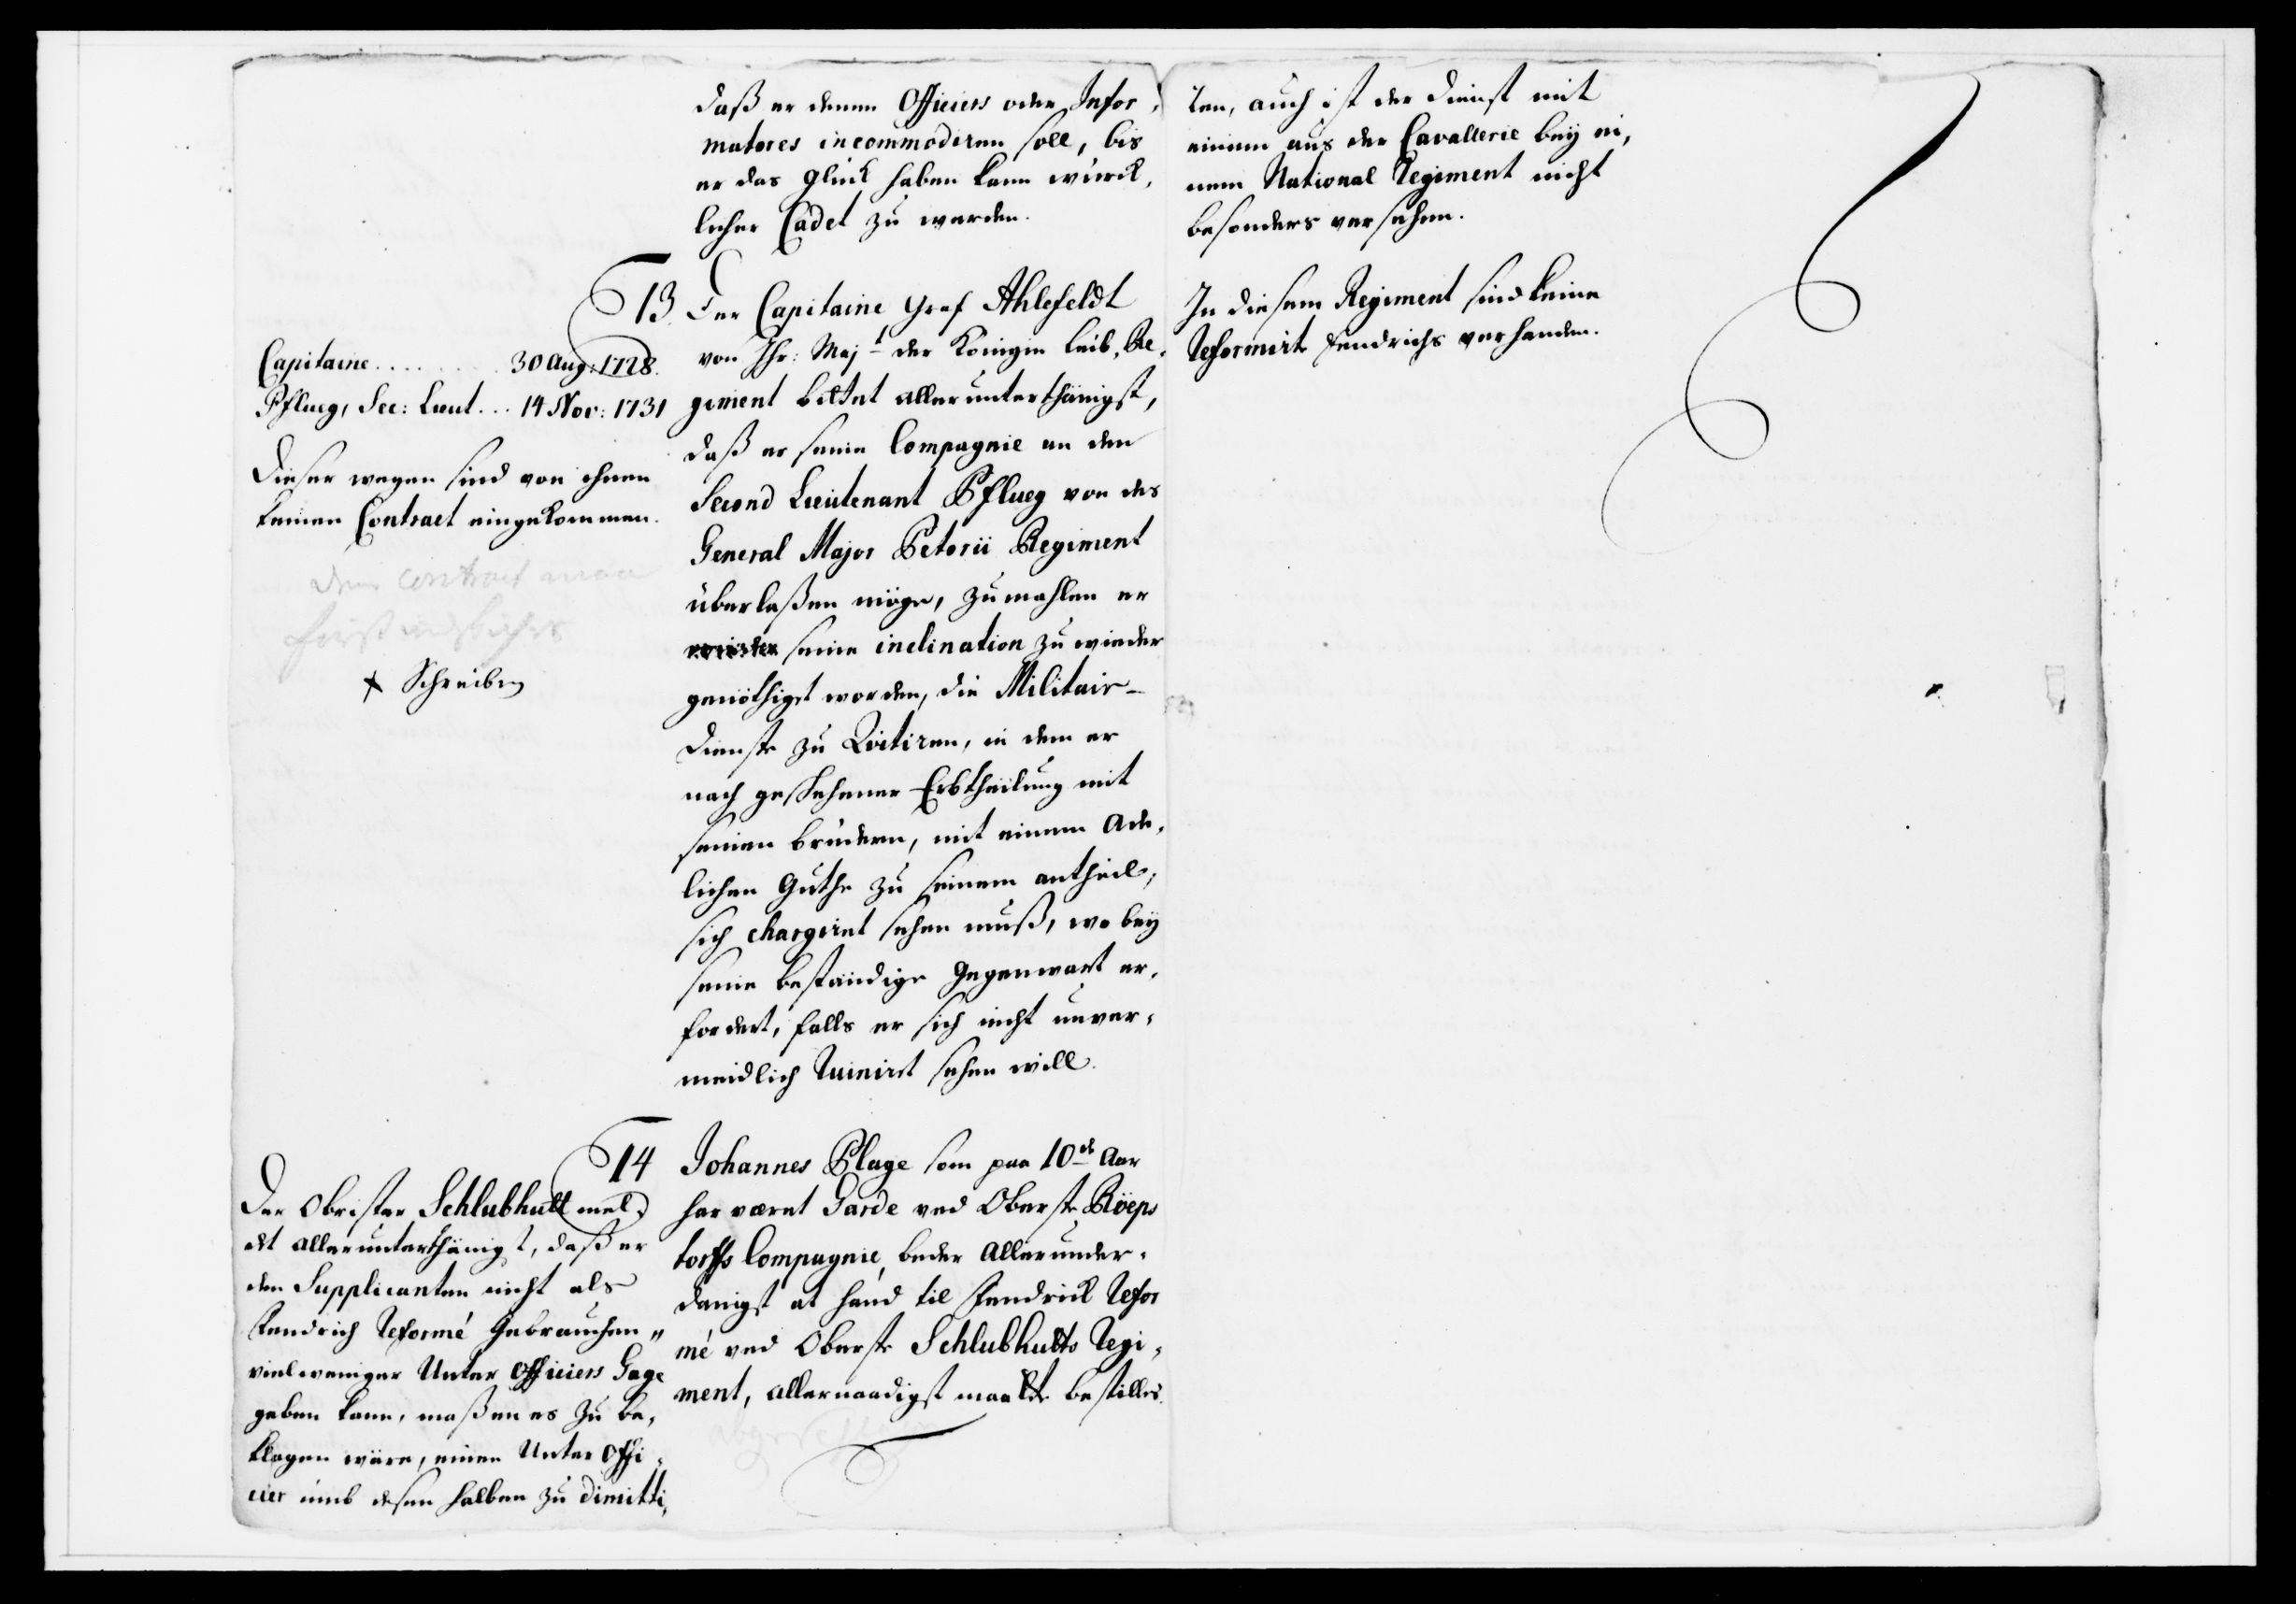 daß er denen Officiers oder Infor,
matores incommodiren soll, bis
er das Glück haben kann würck,
licher Cadet zu werden.
13. Der Capitaine Graf Ahlefeldt
von Ihr: Majt der Königin Leib, Re,
giment bittet allerunterthänigst,
daß er seine Compagnie an den
Second Lieutenant Pflueg von des
General Major Petorii Regiment
überlaßen möge, zumahlen er
seine inclination zu wieder
genöthiget worden, die Militair-
dienste zu Qvitiren, in dem er
nach geschehener Erbtheilung mit
seinen brüdern, mit einem Ade,
lichen Guthe zu seinem antheil,
sich chargiret sehen muß, wo beÿ
seine beständige Gegenwart er,
fordert, falls er sich nicht unver,
meidlich Ruinirt sehen will.
Capitaine......... 30 Aug: 1728.
Pflueg, Sec: Lieut... 14 Nov: 1731
Dieser wegen sind von ihnen
keinen Contract eingekommen.
contract
x Schreiben
14 Johannes Plage som paa 10de Aar
har været Garde ved Oberste Röeps
torffs Compagnie, beder Allerunder,
danigst at hand til Fendrick Refor
mé ved Oberste Schlubhutts Regi,
ment, allernaadigst maatte bestilles.
Der Obrister Schlubhutt mel,
det allerunterthänigst, daß er
den Supplicanten nicht als
Fendrich Reformé Gebrauchen,,
vielweniger Unter Officiers Gage
geben kann, maßen es zu be,
klagen wäre, einen Unter Offi,
cier umb desen halben zu dimitti,
ren, auch ist der dienst mit
einem aus der Cavallerie beÿ ei,
nem National Regiment nicht
besonders versehen.
In diesem Regiment sind keine
Reformirte Fendrichs verhanden.